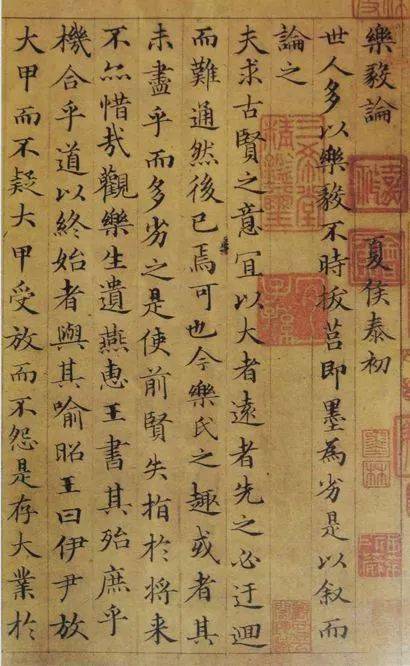 樂毅論 夏侯泰初
世人多以樂毅不時拔莒即墨為劣是以叙而
論之
夫求古賢之意冝以大者遠者先之必迂迴
而難通然後已焉可也今樂氏之趣或者其
未盡乎而多劣之是使前賢失指於将来
不亦惜哉觀樂生遺燕惠王書其殆庶乎
機合乎道以終始者與其喻昭王曰伊尹放
大甲而不疑大甲受放而不怨是存大業於
三希堂精鑑璽
宜子孫